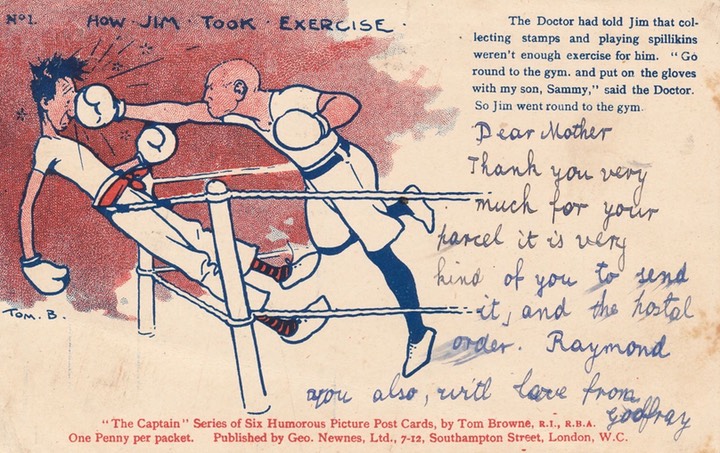 No1. HOW · JIM · TOOK · EXERCISE ·
The Doctor had told Jim that col-
lecting stamps and playing spillikins
weren't enough exercise for him. "Go
round to the gym. and put on the gloves
with my son, Sammy," said the Doctor.
So Jim went round to the gym.
Dear Mother
Thank you very
much for your
parcel it is very
kind of you to send
it, and the postal
order. Raymond
you also, with love from
Godfray
TOM. B.
"The Captain" Series of Six Humorous Picture Post Cards, by Tom Browne, R.I., R.B.A.
One Penny per packet. Published by Geo. Newnes, Ltd., 7-12, Southampton Street, London, W.C.